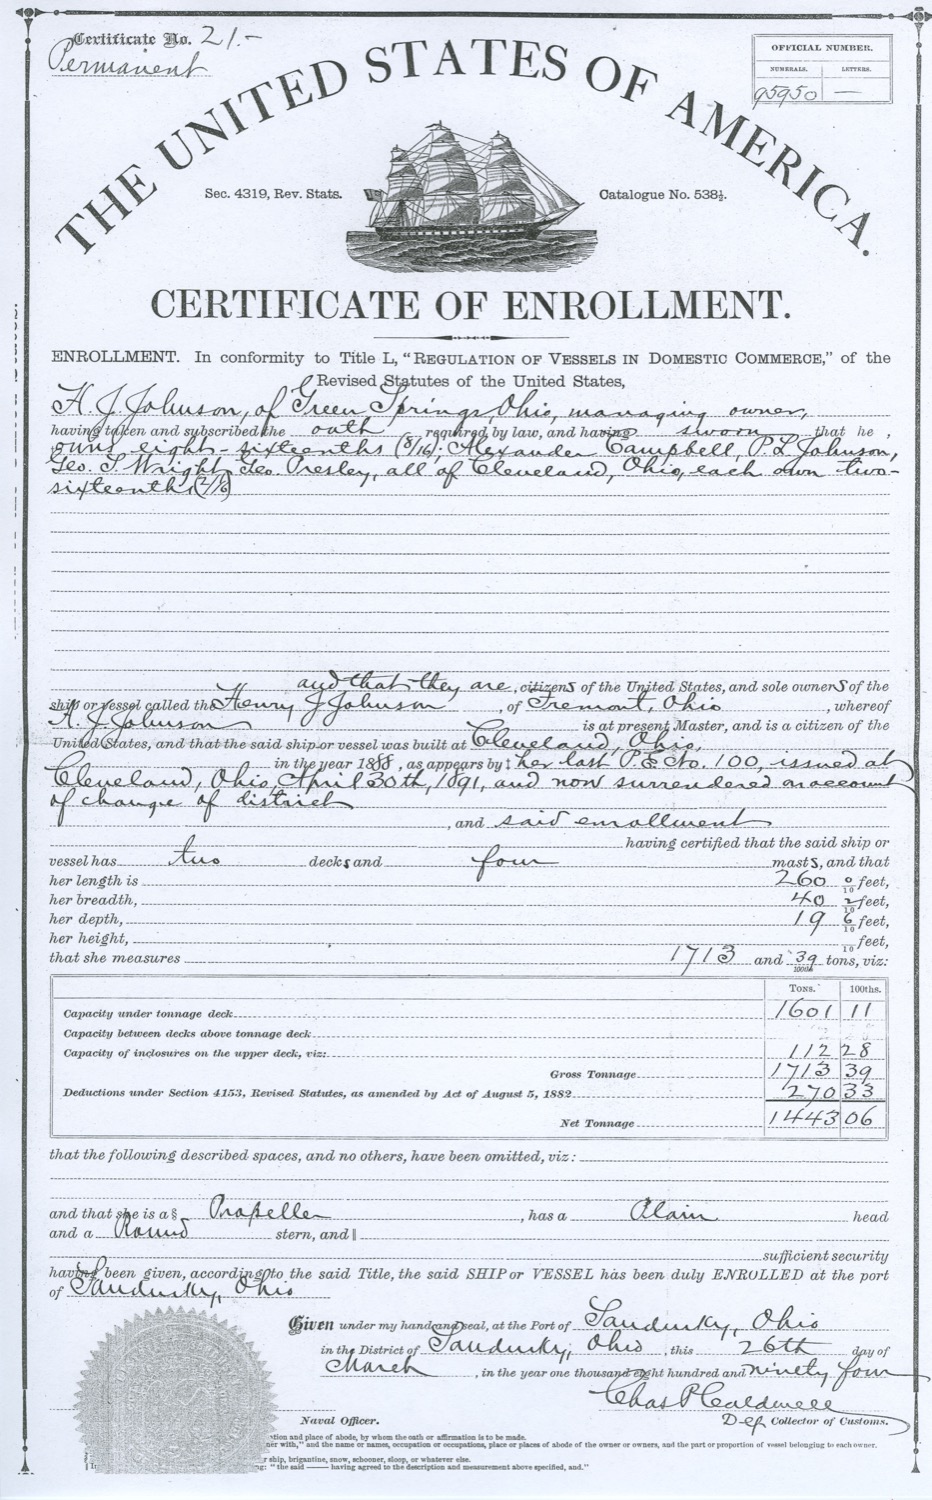 Certificate No. 21.-
Permanent
OFFICIAL NUMBER.
NUMERALS. LETTERS.
95950 —
THE UNITED STATES OF AMERICA.
Sec. 4319, Rev. Stats.
Catalogue No. 538½.
CERTIFICATE OF ENROLLMENT.
ENROLLMENT. In conformity to Title L, "REGULATION OF VESSELS IN DOMESTIC COMMERCE," of the
Revised Statutes of the United States,
H. J. Johnson, of Green Springs, Ohio, managing owner,
having taken and subscribed the oath required by law, and having sworn that he,
owns eight-sixteenths (8/16); Alexander Campbell, P. L. Johnson,
Geo. T. Wright, Geo. Presley, all of Cleveland, Ohio, each own two-
sixteenths (2/16)
and that they are, citizens of the United States, and sole owners of the
ship or vessel called the Henry J Johnson, of Fremont, Ohio, whereof
H. J. Johnson is at present Master, and is a citizen of the
United States, and that the said ship or vessel was built at Cleveland, Ohio,
in the year 1888, as appears by her last P.E. No. 100, issued at
Cleveland, Ohio, April 30th, 1891, and now surrendered on account
of change of district
, and said enrollment
having certified that the said ship or
vessel has two decks and four masts, and that
her length is 260 0/10 feet,
her breadth, 40 2/10 feet,
her depth, 19 6/10 feet,
her height, /10 feet,
that she measures 1713 and 39/100th tons, viz:
Tons. 100ths.
Capacity under tonnage deck 1601 11
Capacity between decks above tonnage deck
Capacity of inclosures on the upper deck, viz: 112 28
Gross Tonnage 1713 39
Deductions under Section 4153, Revised Statutes, as amended by Act of August 5, 1882 270 33
Net Tonnage 1443 06
that the following described spaces, and no others, have been omitted, viz:
and that she is a § Propeller, has a Plain head
and a Round stern, and ||
sufficient security
having been given, according to the said Title, the said SHIP or VESSEL has been duly ENROLLED at the port
of Sandusky, Ohio
Given under my hand and seal, at the Port of Sandusky, Ohio
in the District of Sandusky, Ohio, this 26th day of
March, in the year one thousand eight hundred and ninety four
Chas P Caldwell
Naval Officer. Dep Collector of Customs.
ation and place of abode, by whom the oath or affirmation is to be made.
ner with," and the name or names, occupation or occupations, place or places of abode of the owner or owners, and the part or proportion of vessel belonging to each owner.
r ship, brigantine, snow, schooner, sloop, or whatever else.
g: "the said —— having agreed to the description and measurement above specified, and."